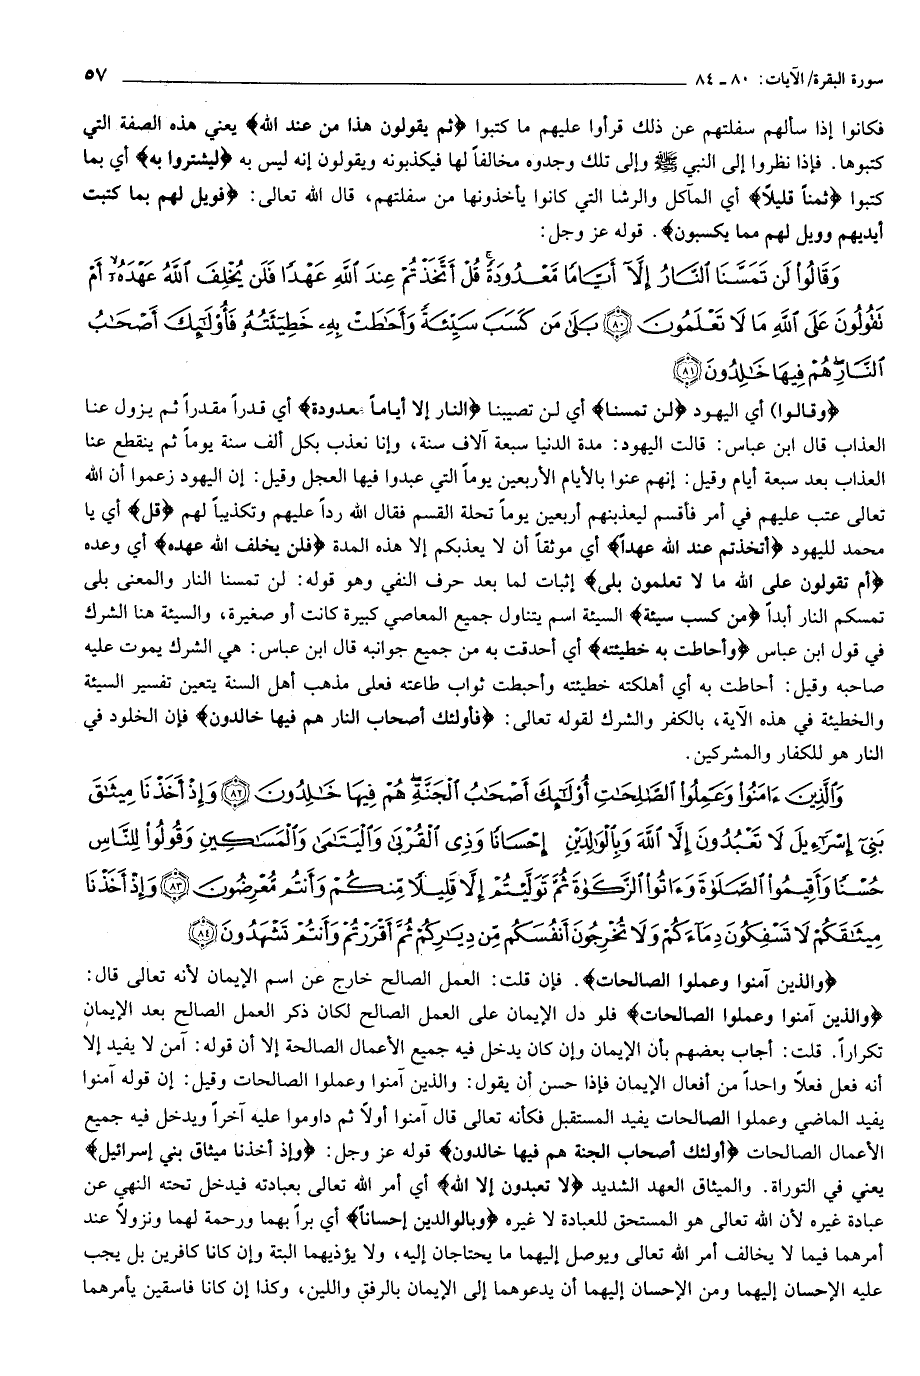 سورة البقرة/ الآيات: ٨٠ ـ ٨٤ ٥٧
فكانوا إذا سألهم سفلتهم عن ذلك قرأوا عليهم ما كتبوا ﴿ثم يقولون هذا من عند الله﴾ يعني هذه الصفة التي
كتبوها. فإذا نظروا إلى النبي ﷺ وإلى تلك وجدوه مخالفاً لها فيكذبونه ويقولون إنه ليس به ﴿ليشتروا به﴾ أي بما
كتبوا ﴿ثمناً قليلاً﴾ أي المآكل والرشا التي كانوا يأخذونها من سفلتهم، قال الله تعالى: ﴿فويل لهم بما كتبت
أيديهم وويل لهم مما يكسبون﴾. قوله عز وجل:
وَقَالُوا لَن تَمَسَّنَا النَّارُ إِلَّا أَيَّامًا مَّعْدُودَةً قُلْ أَتَّخَذْتُمْ عِندَ اللَّهِ عَهْدًا فَلَن يُخْلِفَ اللَّهُ عَهْدَهُ أَمْ
نَقُولُونَ عَلَى اللَّهِ مَا لَا تَعْلَمُونَ ﴿٨٠﴾ بَلَى مَن كَسَبَ سَيِّئَةً وَأَحَاطَتْ بِهِ خَطِيئَتُهُ فَأُولَئِكَ أَصْحَابُ
النَّارِ هُمْ فِيهَا خَالِدُونَ ﴿٨١﴾
﴿وقالوا) أي اليهود ﴿لن تمسنا﴾ أي لن تصيبنا ﴿النار إلا أياماً معدودة﴾ أي قدراً مقدراً ثم يزول عنا
العذاب قال ابن عباس: قالت اليهود: مدة الدنيا سبعة آلاف سنة، وإنا نعذب بكل ألف سنة يوماً ثم ينقطع عنا
العذاب بعد سبعة أيام وقيل: إنهم عنوا بالأيام الأربعين يوماً التي عبدوا فيها العجل وقيل: إن اليهود زعموا أن الله
تعالى عتب عليهم في أمر فأقسم ليعذبنهم أربعين يوماً تحلة القسم فقال الله رداً عليهم وتكذيباً لهم ﴿قل﴾ أي يا
محمد لليهود ﴿أتخذتم عند الله عهداً﴾ أي موثقاً أن لا يعذبكم إلا هذه المدة ﴿فلن يخلف الله عهده﴾ أي وعده
﴿أم تقولون على الله ما لا تعلمون بلى﴾ إثبات لما بعد حرف النفي وهو قوله: لن تمسنا النار والمعنى بلى
تمسكم النار أبداً ﴿من كسب سيئة﴾ السيئة اسم يتناول جميع المعاصي كبيرة كانت أو صغيرة، والسيئة هنا الشرك
في قول ابن عباس ﴿وأحاطت به خطيئته﴾ أي أحدقت به من جميع جوانبه قال ابن عباس: هي الشرك يموت عليه
صاحبه وقيل: أحاطت به أي أهلكته خطيئته وأحبطت ثواب طاعته فعلى مذهب أهل السنة يتعين تفسير السيئة
والخطيئة في هذه الآية، بالكفر والشرك لقوله تعالى: ﴿فأولئك أصحاب النار هم فيها خالدون﴾ فإن الخلود في
النار هو للكفار والمشركين.
وَالَّذِينَ ءَامَنُوا وَعَمِلُوا الصَّالِحَاتِ أُولَئِكَ أَصْحَابُ الْجَنَّةِ هُمْ فِيهَا خَالِدُونَ ﴿٨٢﴾ وَإِذْ أَخَذْنَا مِيثَاقَ
بَنِي إِسْرَائِيلَ لَا تَعْبُدُونَ إِلَّا اللَّهَ وَبِالْوَالِدَيْنِ إِحْسَانًا وَذِي الْقُرْبَى وَالْيَتَامَى وَالْمَسَاكِينِ وَقُولُوا لِلنَّاسِ
حُسْنًا وَأَقِيمُوا الصَّلَاةَ وَءَاتُوا الزَّكَاةَ ثُمَّ تَوَلَّيْتُمْ إِلَّا قَلِيلًا مِّنكُمْ وَأَنتُم مُّعْرِضُونَ ﴿٨٣﴾ وَإِذْ أَخَذْنَا
مِيثَاقَكُمْ لَا تَسْفِكُونَ دِمَاءَكُمْ وَلَا تُخْرِجُونَ أَنفُسَكُم مِّن دِيَارِكُمْ ثُمَّ أَقْرَرْتُمْ وَأَنتُمْ تَشْهَدُونَ ﴿٨٤﴾
﴿والذين آمنوا وعملوا الصالحات﴾. فإن قلت: العمل الصالح خارج عن اسم الإيمان لأنه تعالى قال:
﴿والذين آمنوا وعملوا الصالحات﴾ فلو دل الإيمان على العمل الصالح لكان ذكر العمل الصالح بعد الإيمان
تكراراً. قلت: أجاب بعضهم بأن الإيمان وإن كان يدخل فيه جميع الأعمال الصالحة إلا أن قوله: آمن لا يفيد إلا
أنه فعل فعلاً واحداً من أفعال الإيمان فإذا حسن أن يقول: والذين آمنوا وعملوا الصالحات وقيل: إن قوله آمنوا
يفيد الماضي وعملوا الصالحات يفيد المستقبل فكأنه تعالى قال آمنوا أولاً ثم داوموا عليه آخراً ويدخل فيه جميع
الأعمال الصالحات ﴿أولئك أصحاب الجنة هم فيها خالدون﴾ قوله عز وجل: ﴿وإذ أخذنا ميثاق بني إسرائيل﴾
يعني في التوراة. والميثاق العهد الشديد ﴿لا تعبدون إلا الله﴾ أي أمر الله تعالى بعبادته فيدخل تحته النهي عن
عبادة غيره لأن الله تعالى هو المستحق للعبادة لا غيره ﴿وبالوالدين إحساناً﴾ أي براً بهما ورحمة لهما ونزولاً عند
أمرهما فيما لا يخالف أمر الله تعالى ويوصل إليهما ما يحتاجان إليه، ولا يؤذيهما البتة وإن كانا كافرين بل يجب
عليه الإحسان إليهما ومن الإحسان إليهما أن يدعوهما إلى الإيمان بالرفق واللين، وكذا إن كانا فاسقين يأمرهما